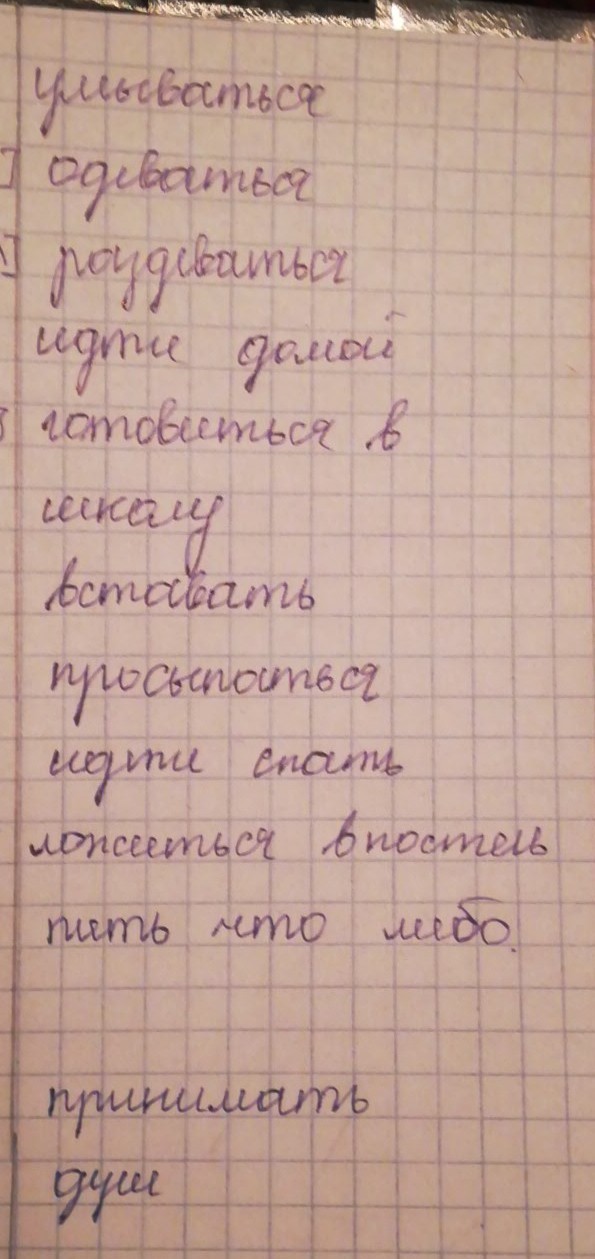 умываться
] одеваться
] раздеваться
идти домой
готовиться в
школу
вставать
просыпаться
идти спать
ложиться в постель
пить что либо.
принимать
душ